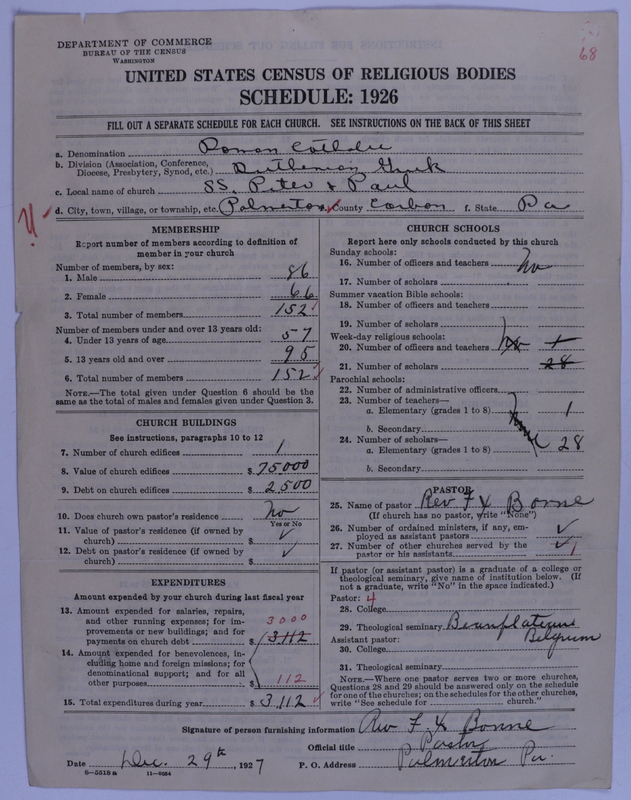 68
DEPARTMENT OF COMMERCE
BUREAU OF THE CENSUS
WASHINGTON
UNITED STATES CENSUS OF RELIGIOUS BODIES
SCHEDULE: 1926
FILL OUT A SEPARATE SCHEDULE FOR EACH CHURCH. SEE INSTRUCTIONS ON THE BACK OF THIS SHEET
a. Denomination Roman Catholic
b. Division (Association, Conference,
Diocese, Presbytery, Synod, etc.) Greek
c. Local name of church SS. Peter & Paul
d. City, town, village, or township, etc. Palmerton County Carbon f. State Pa
MEMBERSHIP
Report number of members according to definition of
member in your church
Number of members, by sex:
1. Male 86
2. Female 66
3. Total number of members 152
Number of members under and over 13 years old:
4. Under 13 years of age 57
5. 13 years old and over 95
6. Total number of members 152
NOTE.—The total given under Question 6 should be the
same as the total of males and females given under Question 3.
CHURCH BUILDINGS
See instructions, paragraphs 10 to 12
7. Number of church edifices 1
8. Value of church edifices $ 75000
9. Debt on church edifices $ 2500
10. Does church own pastor's residence No
Yes or No
11. Value of pastor's residence (if owned by
church) $ ✓
12. Debt on pastor's residence (if owned by
church) $ ✓
EXPENDITURES
Amount expended by your church during last fiscal year
13. Amount expended for salaries, repairs,
and other running expenses; for im-
provements or new buildings; and for
payments on church debt 3000
$ 3112
14. Amount expended for benevolences, in-
cluding home and foreign missions; for
denominational support; and for all
other purposes $ 112
15. Total expenditures during year $ 3112
CHURCH SCHOOLS
Report here only schools conducted by this church
Sunday schools:
16. Number of officers and teachers No
17. Number of scholars
Summer vacation Bible schools:
18. Number of officers and teachers
19. Number of scholars
Week-day religious schools:
20. Number of officers and teachers 1
21. Number of scholars 28
Parochial schools:
22. Number of administrative officers
23. Number of teachers—
a. Elementary (grades 1 to 8) 1
b. Secondary
24. Number of scholars—
a. Elementary (grades 1 to 8) None 28
b. Secondary
PASTOR
25. Name of pastor Rev F X Bonne
(If church has no pastor, write "None")
26. Number of ordained ministers, if any, em-
ployed as assistant pastors ✓
27. Number of other churches served by the
pastor or his assistants ✓ 1
If pastor (or assistant pastor) is a graduate of a college or
theological seminary, give name of institution below. (If
not a graduate, write "No" in the space indicated.)
Pastor: 4
28. College
29. Theological seminary
Belgium
Assistant pastor:
30. College
31. Theological seminary
NOTE.—Where one pastor serves two or more churches,
Questions 28 and 29 should be answered only on the schedule
for one of the churches; on the schedules for the other churches,
write "See schedule for church."
Signature of person furnishing information Rev F X Bonne
Official title Pastor
Date Dec. 29th, 1927 P. O. Address Palmerton Pa.
8—5518a 11—9054